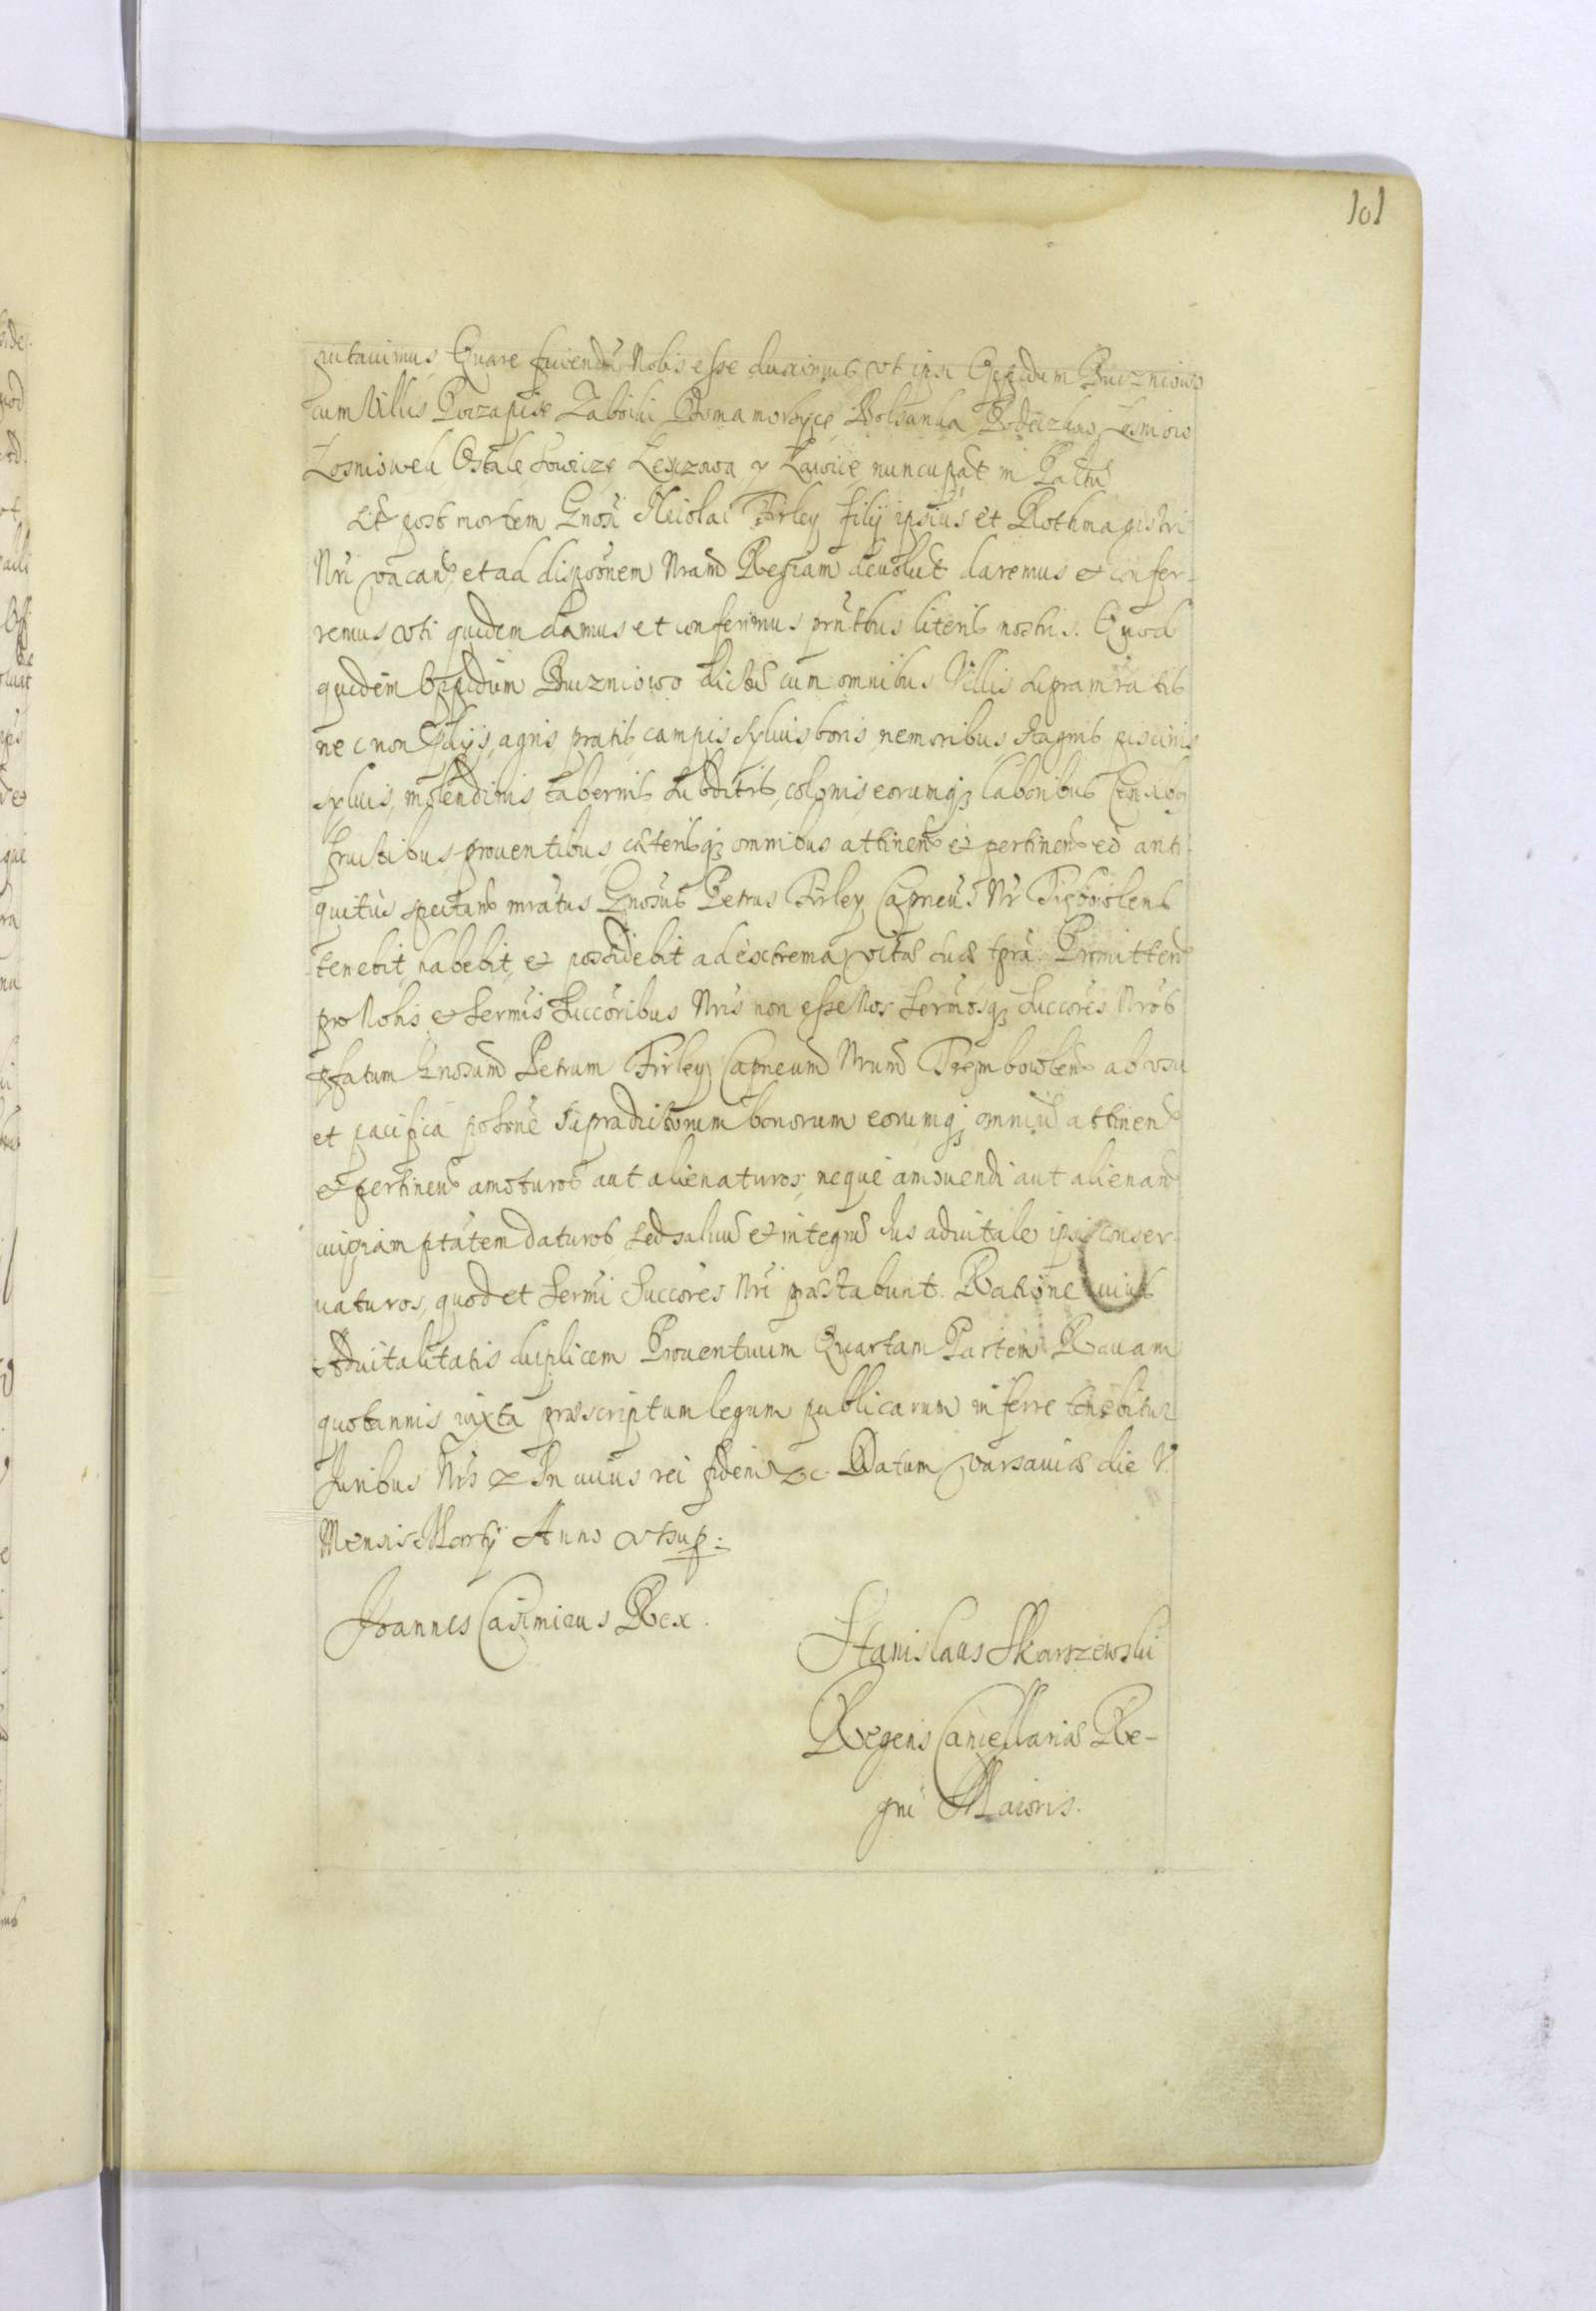 101
putauimus, Quare faciendũ Nobis esse duximus, vt ipsi Oppidum Buczniowo
cum Villis Poczapise Zaboiki Domamorycze Dolzanka Łozniow
Łosniowek Ostale Łowicze y Ławice nuncupat in Palatũ
Et post mortem Gnosi Nicolai Firley filij ipsius et Rothmagistri
Nri vacan, et ad disponem Nram Regiam deuolut daremus et confer-
remus vti quidem damus et conferimus prntibus literis nostris. Quod
quidem Oppidum Buczniowo dictũ cum omnibus Villis supramratis
nec non agris pratis campis syluis boris nemoribus stagnis piscinis
syluis, molendinis, tabernis subditis, colonis, eorumq; laboribus
fructibus, prouentibus, cæterisq; omnibus attinen et pertinen eo anti-
quitus spectan mratus Gnosus Petrus Firley Capneus Nr
tenebit, habebit, et possidebit ad extrema vitæ suæ tpra. Promitten
pro Nobis et Sermis Succoribus Nris non esse Nos Sermosq; Succores Nros
pfatum Gnosum Petrum Firley Capneum Nrum Trembowlen ab vsu
et pacifica possone supradictorum bonorum eorumq; omniũ attinen
et pertinen amoturos aut alienaturos, neque amouendi aut alienan
cuipiam ptatem daturos sed saluũ et integrũ Ius aduitale ipsi conser-
uaturos, quod et Sermi Succores Nri præstabunt. Ratione cuius
Aduitalitatis duplicem Prouentuum Quartam Partem Rauam
quotannis iuxta præscriptum legum publicarum inferre tenebitur
Iuribus Nris &. In cuius rei fidem &c. Datum Varsauiæ die V.
Mensis Martij Anno vt sup:
Joannes Casimirus Rex.
Stanislaus Skarszewski
Regens Cancellariæ Re-
gni Maioris.